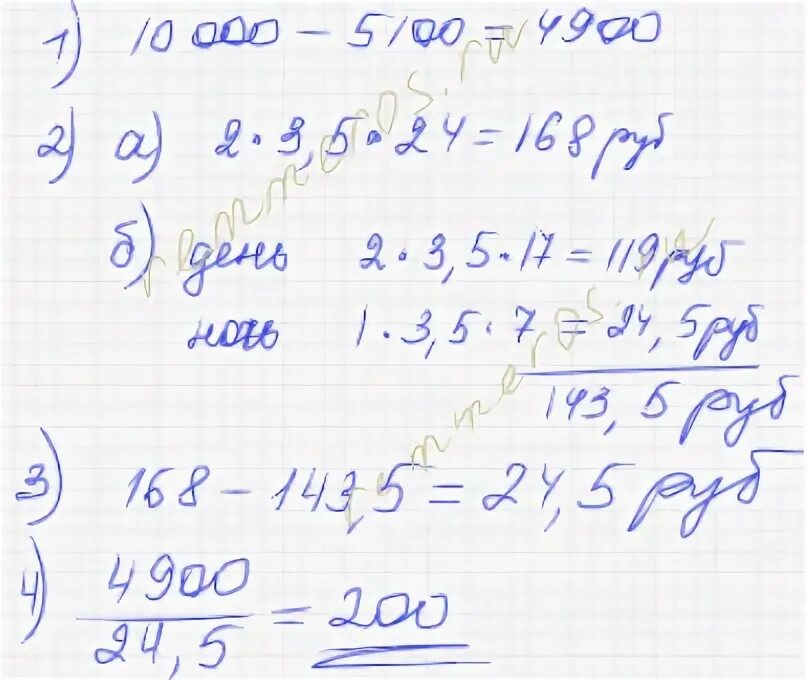 1) 10 000 – 5100 = 4900
2) а) 2 · 3,5 · 24 = 168 руб
б) день 2 · 3,5 · 17 = 119 руб
ночь 1 · 3,5 · 7 = 24,5 руб
143,5 руб
3) 168 – 143,5 = 24,5 руб
4) 4900
24,5 = 200